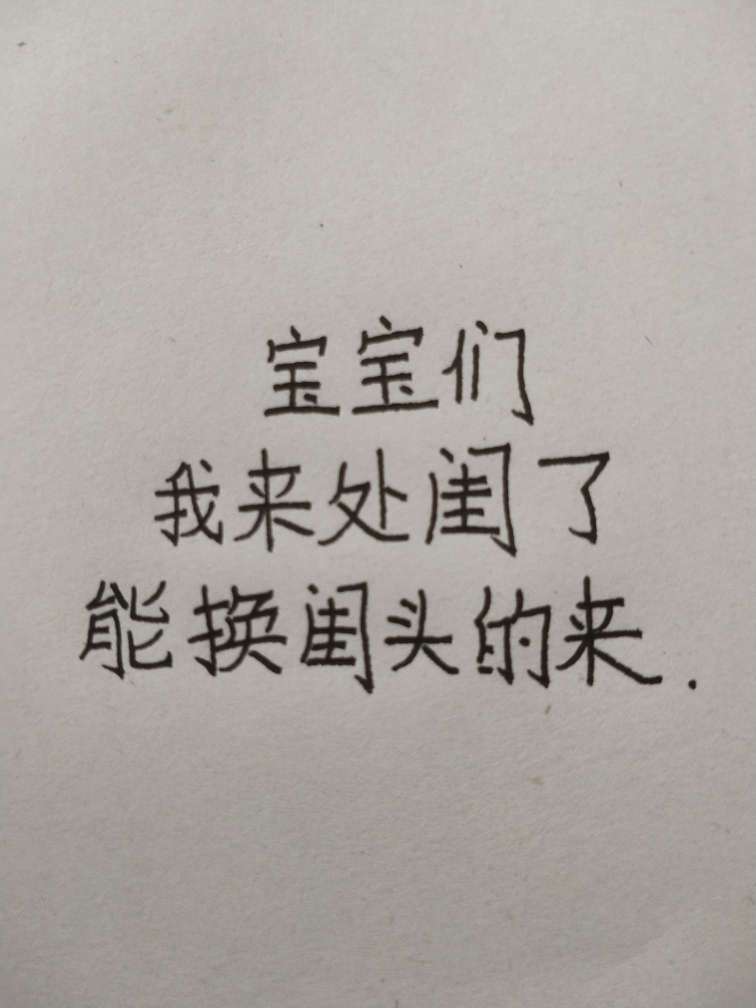 宝宝们
我来处闺了
能换闺头的来.